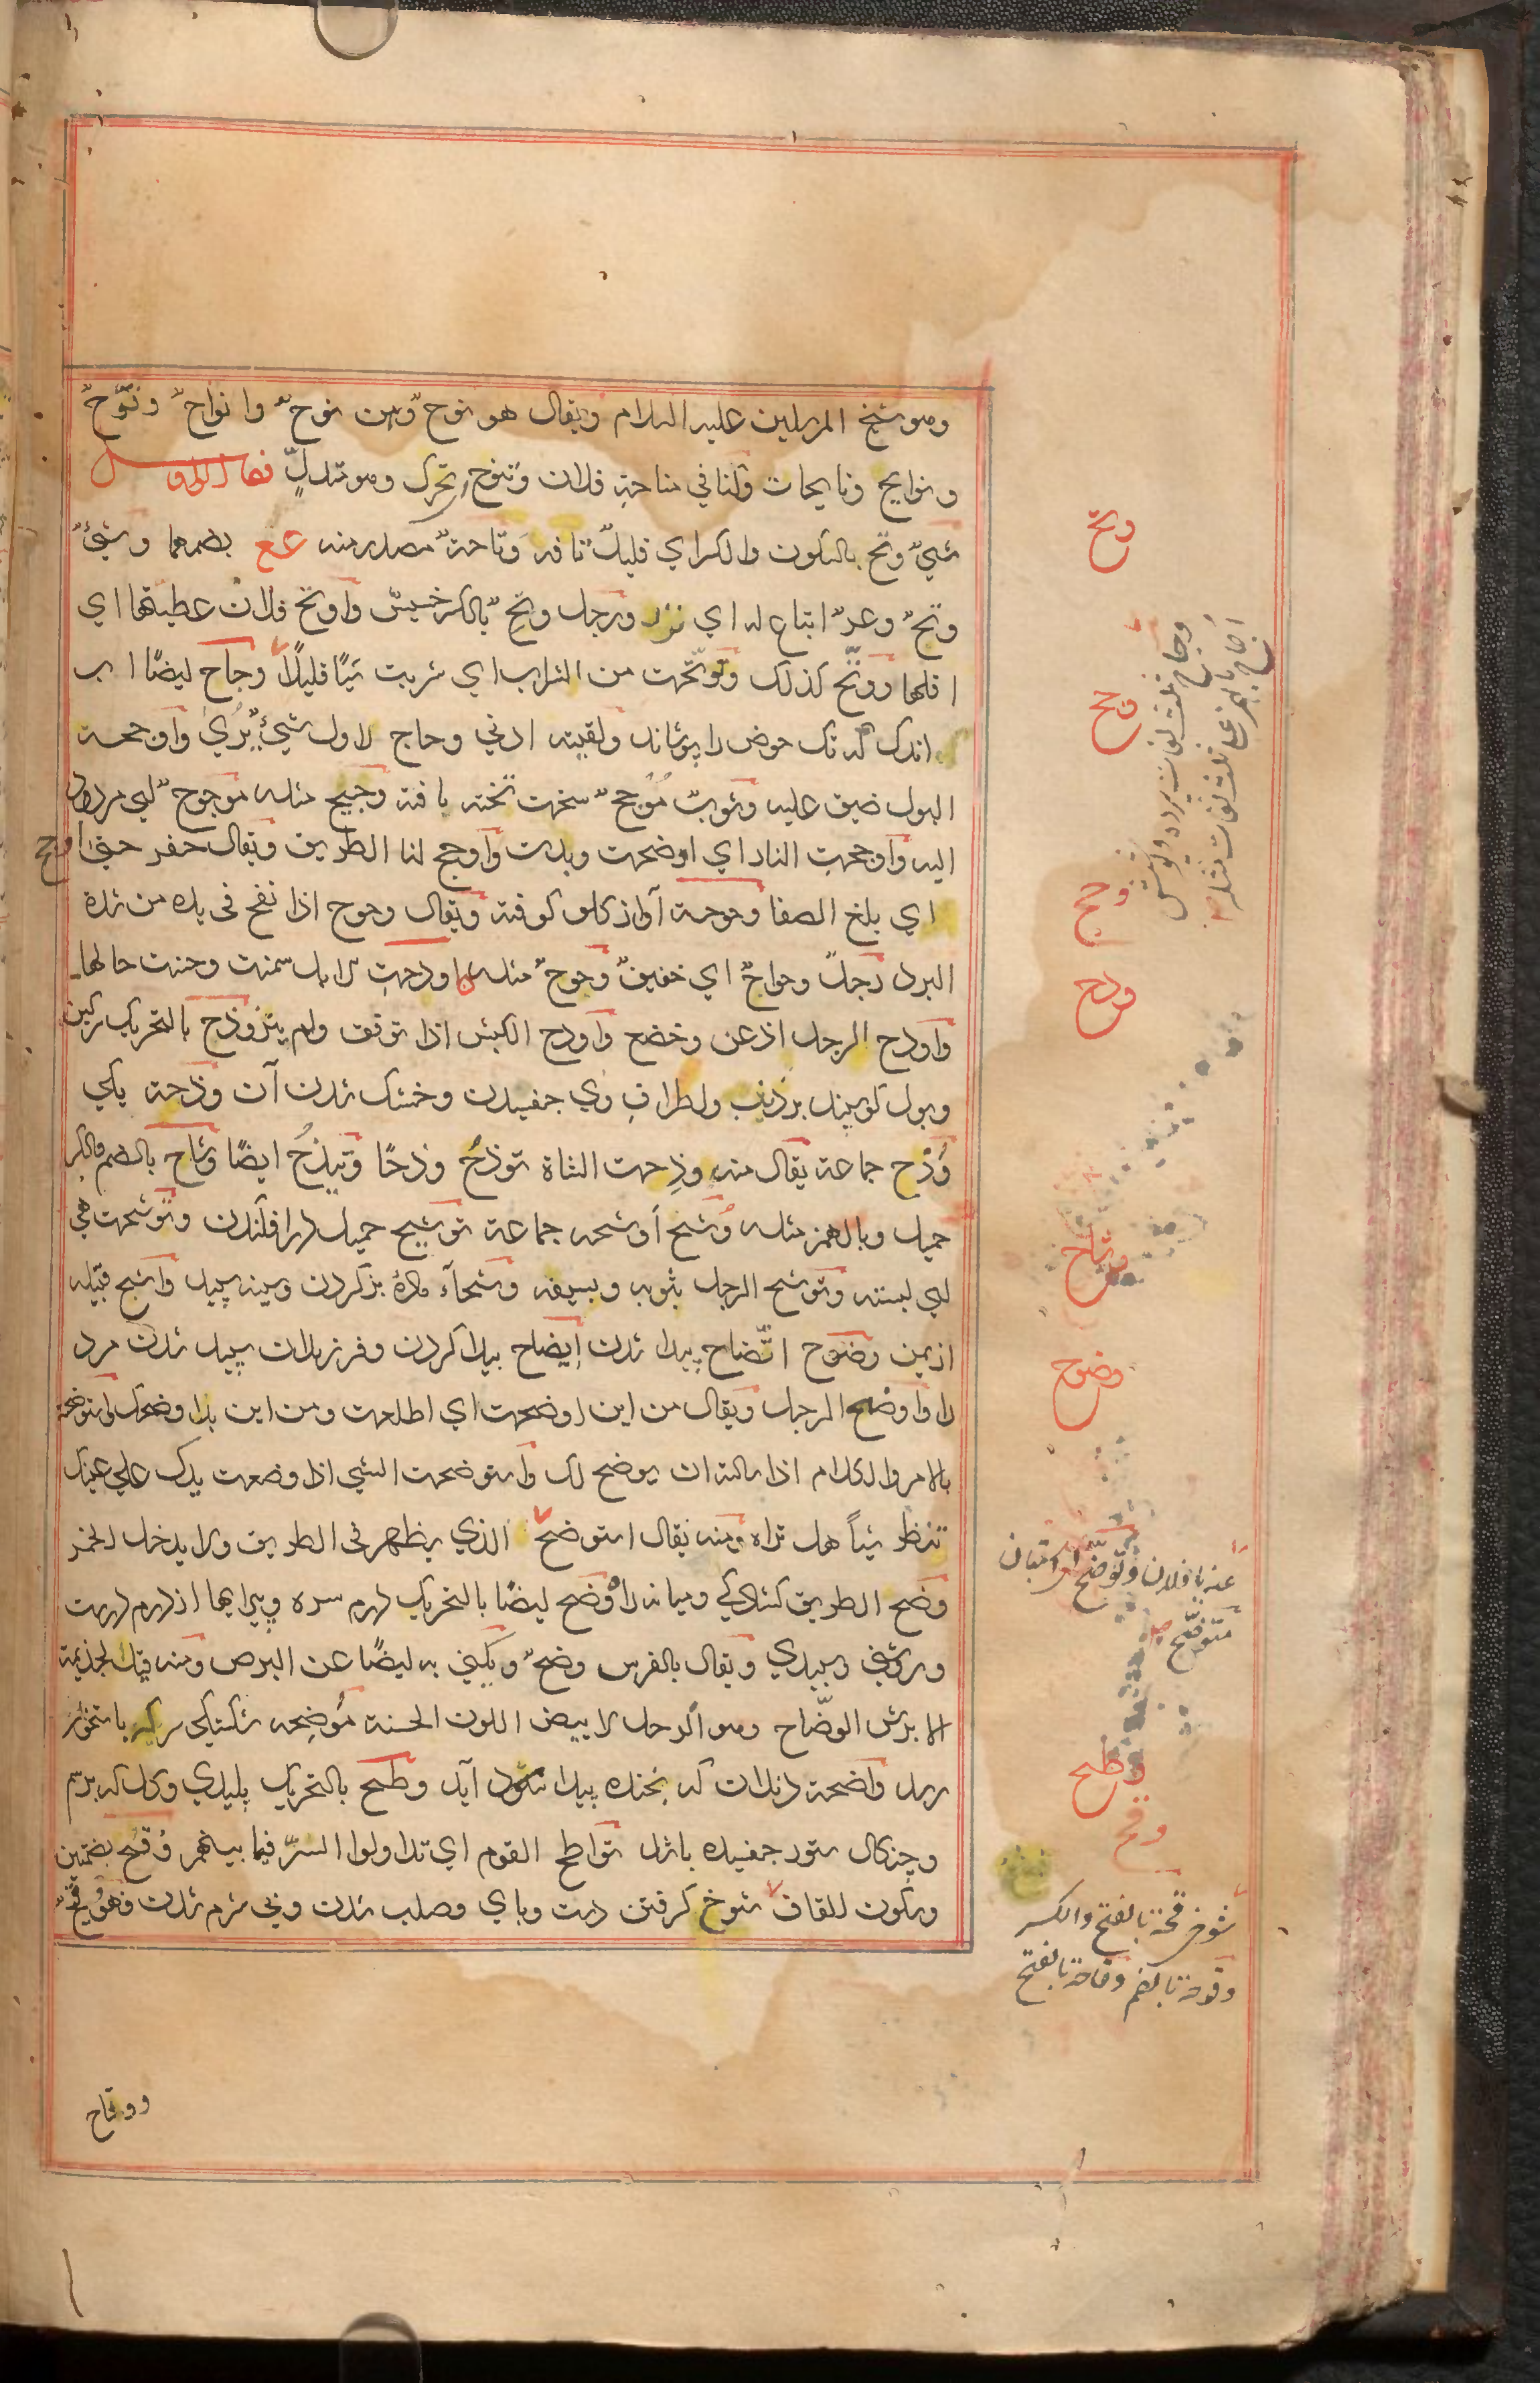 وهو شيخ المرسلين عليه السلام ويقال هو نوح وهن نوح وانواح ونُوَّح
ونوايح ونايحات وكنا في مناحة فلان وتنوح تحرك وهو متدلٍّ فصل الواو
شيٌ وتح بالسكون والكسر اي قليل تافه وَتاحة مصدر منه عع بضمهما وشئ
وتحٌ وعرٌ اتباع له اي نزر ورجل وتحٌ بالكسر خسيس واوتح فلان عطيتها اي
اقلها ووتّح كذلك وتوتّحت من الشراب اي شربت شيًا قليلاً وجاح ايضًا آب
اندك كه تك حوض را پوشاند ولقيته ادني وجاح لاول شيٍ يُرَي واوجحه
البول ضيق عليه وثوبٌ مُوجح سخت تخته بافته وجيح مثله موجوح
اليه واوجحت النار اي اوضحت وبدت واوجح لنا الطريق ويقال حفر حتى اوجح
اي بلغ الصفا وحوحة آواز گلو گرفته ويقال وحوح اذا نفخ في يده من شدة
البرد رجلٌ وحواح اي خفيف وحوح مثله ودحت الابل سمنت وحسنت حالها
واودح الرجل اذعن وخضع واودح الكبش اذا توقف ولم ينز وذح بالتحريك سرگين
وبول گوسپند بر ذنب واطراف وي چفسيدن وخشك شدن آن وذحة يكي
وُذْح جماعة يقال منه وذِحت الشاة توذَح وذحًا وتيذَحُ ايضًا وشاح بالضم والكسر
حميل وبالهمز مثله وُشح اَوشحه جماعة توشيح حميل درافكندن وتوشحت هي
اي لبسته وتوشح الرجل بثوبه وبسيفه وشحآء ماده بز گردن وسينه سپيد واشح قبيله
از يمن وضوح اتّضاح پيدا شدن ايضاح پيدا كردن وفرزندان سپيد شدن مرد
را واوضح الرجل ويقال من اين اوضحت اي اطلعت ومن اين بدا وضحك واستوضحه
بالامر والكلام اذا سالته ان يوضح لك واستوضحت الشي اذا وضعت يدك علي عينك
تنظر شيئاً هل تراه ومنه يقال استوضح الذي يظهر في الطريق ولا يدخل الخمر
وضح الطريق گشادگي وميانه راه وَضح ايضًا بالتحريك درم سره وپيرايها از درم درست
وروشني وسپيدي ويقال بالفرس وضح ويكني به ايضًا عن البرص ومنه قيل لجذيمة
الابرش الوضّاح وهو الرجل الابيض اللون الحسنة مُوضِحه شكستگي سر كه باستخوان
رسد واضحة دندان كه بخنده پيدا شود آيد وطح بالتحريك پليدي وگل كه بر سم
وچنگال ستور چفسيده باشد تواطح القوم اي تداولوا الشرّ فيما بينهم وُقُح بضمتين
وسكون القاف شوخ گرفتن دست وپاي وصلب شدن وبي شرم شدن فهو
وتح
وجح
وحح
ودح
وشاح
وضوح
وطح
وقح
وجاح ثلث لغات پرده وپوشش
اجاح بالهمز عع ثلث لغات مثله
عنه يا فلان وتوضّح
متوضّح
شوخي قحة بالفتح والكسر
وقوحة بالضم وقاحة بالفتح
ووقاح